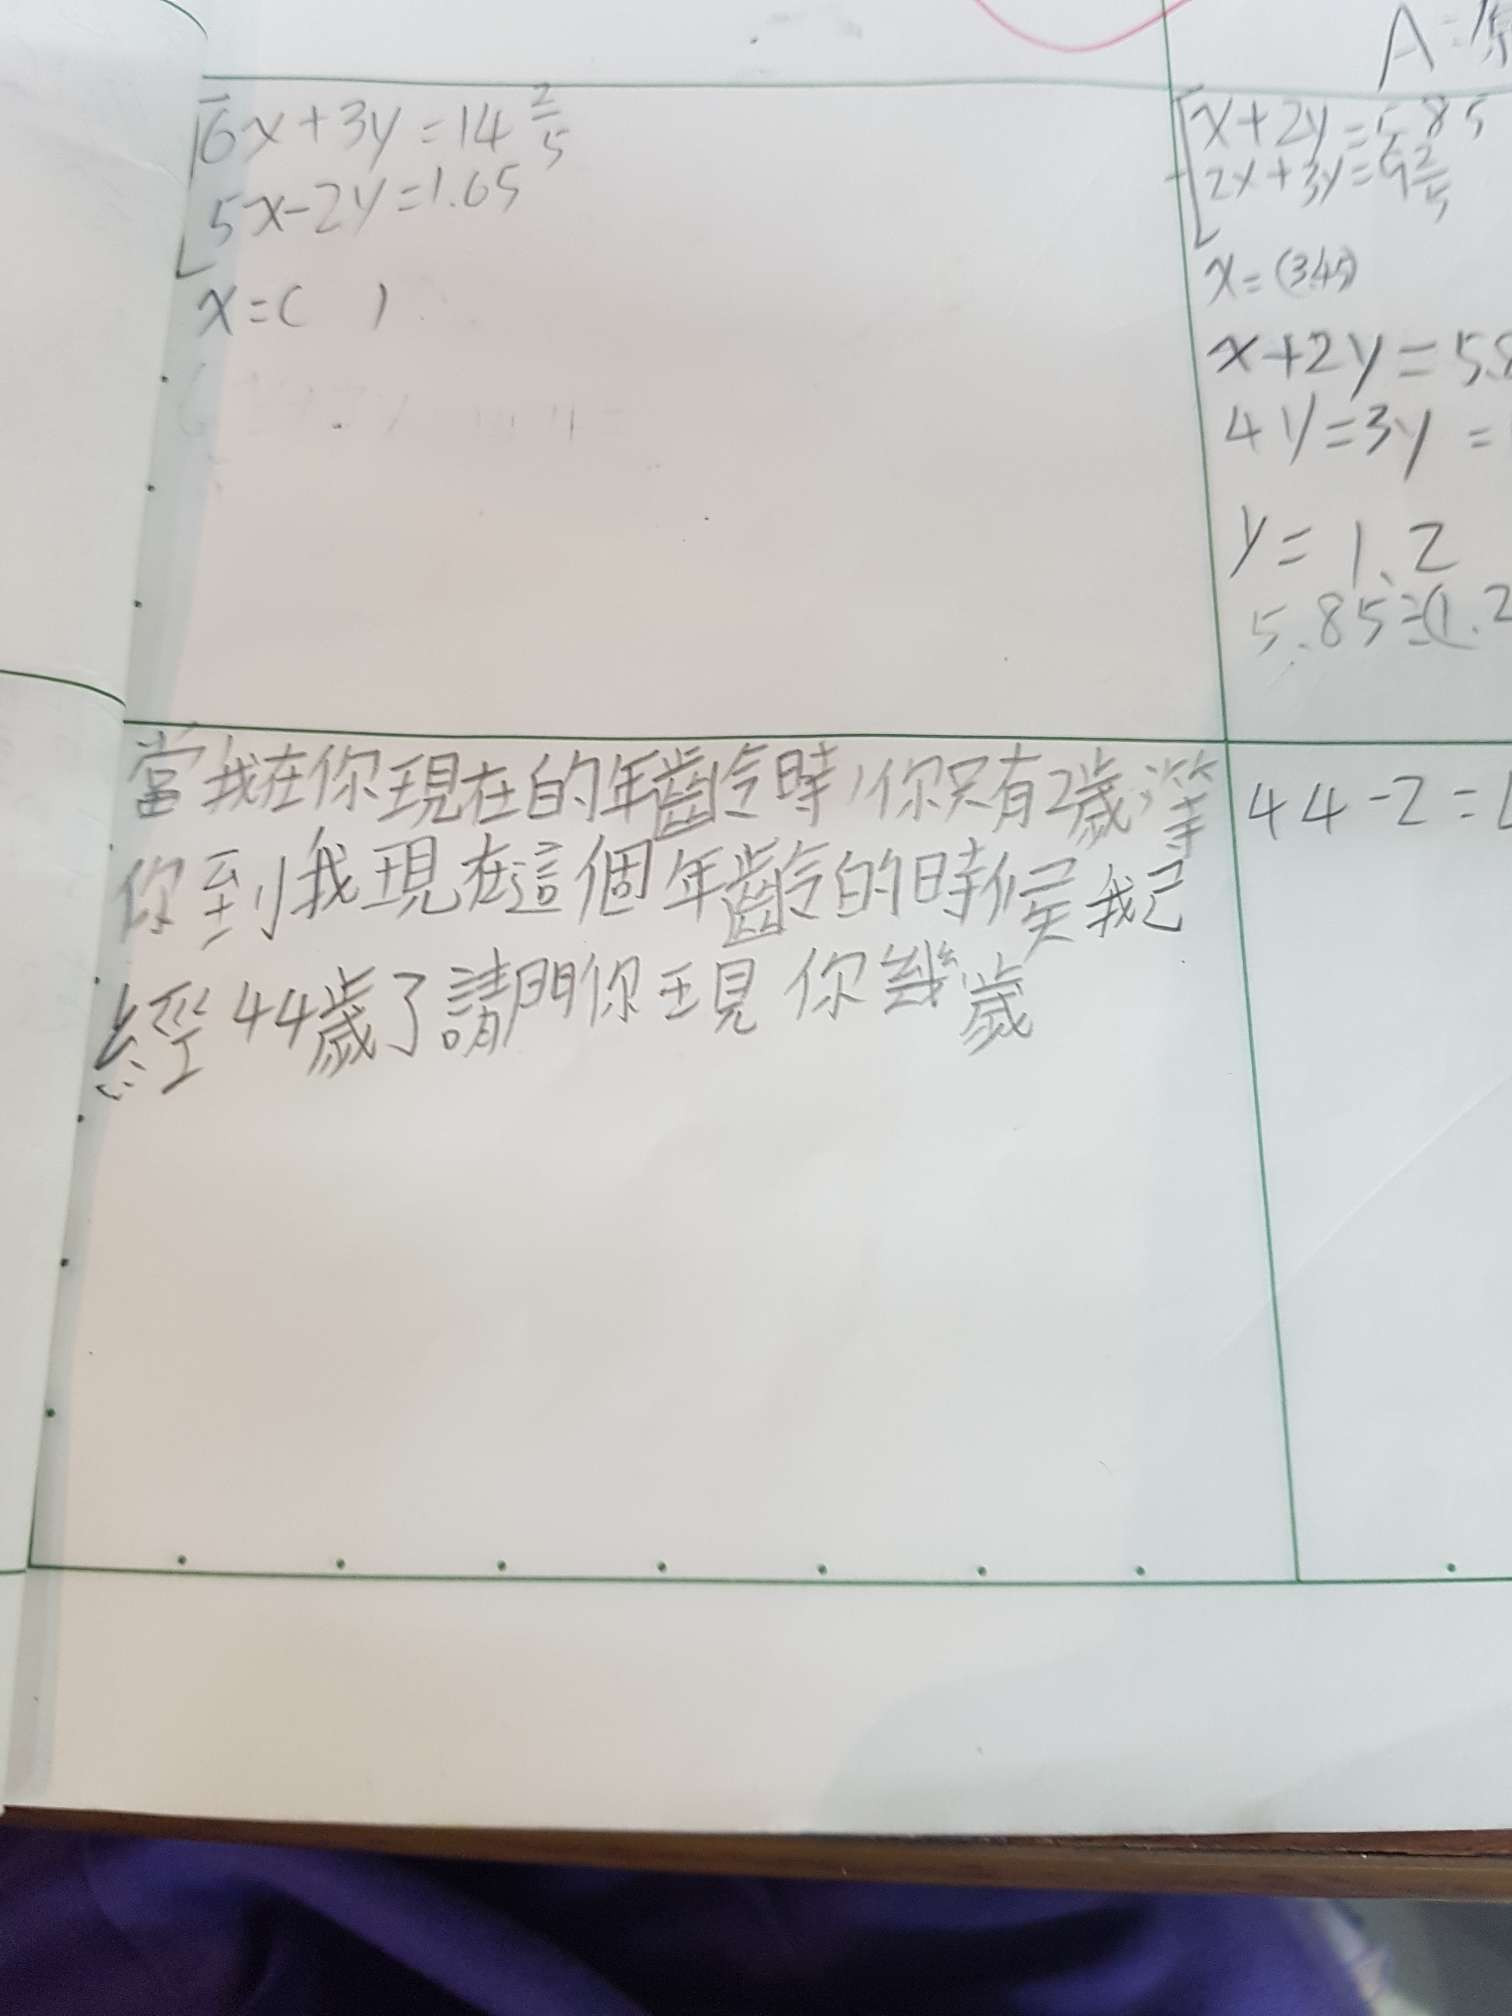 6x+3y=14 2/5
5x-2y=1.65
x=( )
當我在你現在的年齡時,你只有2歲;等
你到我現在這個年齡的時候我已
經44歲了請問你現 你幾歲
A=
x+2y=5.85
2x+3y=9 2/5
x=(3.45)
x+2y=5.8
4y=3y=
y=1.2
5.85=(1.2
44-2=